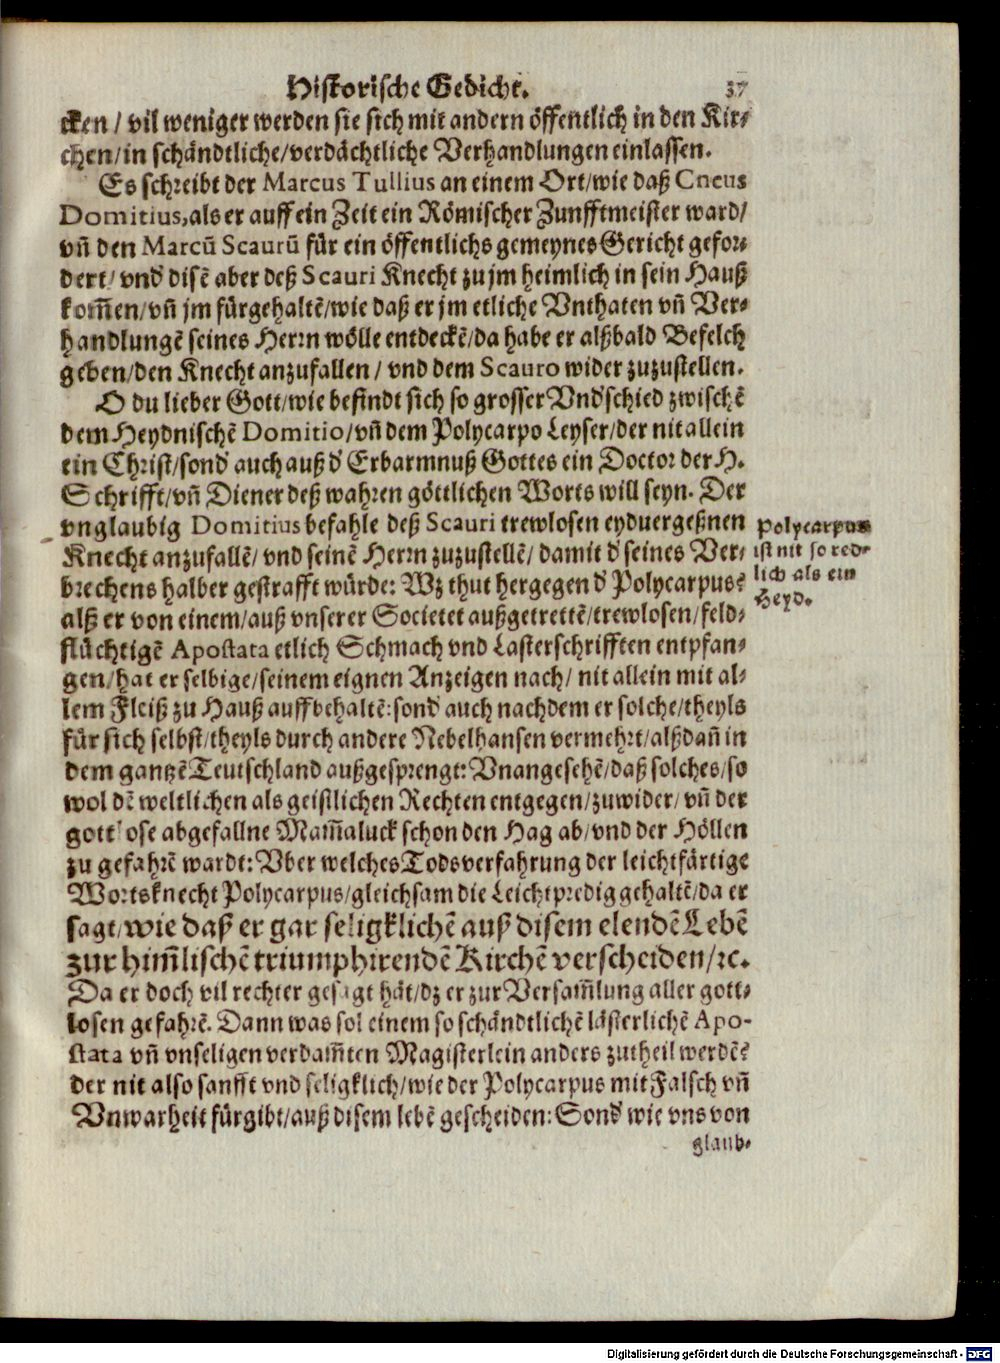 Historische Gedicht. 37
cken / vil weniger werden sie sich mit andern öffentlich in den Kir⸗
chen/in schändtliche/verdächtliche Verhandlungen einlassen.
Es schreibt der Marcus Tullius an einem Ort/wie daß Cneus
Domitius,als er auff ein Zeit ein Römischer Zunfftmeister ward/
vñ den Marcū Scaurū für ein öffentlichs gemeynes Gericht gefor⸗
dert/ vnd disē aber deß Scauri Knecht zu jm heimlich in sein Hauß
kom̃en/vñ jm fürgehaltē/wie daß er jm etliche Vnthaten vñ Ver⸗
handlungē seines Herrn wölle entdeckē/da habe er alßbald Befelch
geben/den Knecht anzufallen / vnd dem Scauro wider zuzustellen.
O du lieber Gott/wie befindt sich so grosser Vnd'schied zwischē
dem Heydnischē Domitio/vñ dem Polycarpo Leyser/der nit allein
ein Christ/sond' auch auß d' Erbarmnuß Gottes ein Doctor der H.
Schrifft/vñ Diener deß wahren göttlichen Worts will seyn. Der
vnglaubig Domitius befahle deß Scauri trewlosen eyduergeßnen
Knecht anzufallē/ vnd seinē Herrn zuzustellē/ damit d' seines Ver⸗
brechens halber gestrafft würde: Wz thut hergegen d' Polycarpus?
alß er von einem/auß vnserer Societet außgetrettē/trewlosen/feld⸗
flüchtigē Apostata etlich Schmach vnd Lasterschrifften entpfan⸗
gen/hat er selbige/seinem eignen Anzeigen nach/ nit allein mit al⸗
lem Fleiß zu Hauß auffbehaltē:sond' auch nachdem er solche/theyls
für sich selbst/theyls durch andere Nebelhansen vermehrt/alßdañ in
dem gantzē Teutschland außgesprengt: Vnangesehē/daß solches/so
wol dē weltlichen als geistlichen Rechten entgegen/zuwider/ vñ der
gottlose abgefallne Mam̃aluck schon den Hag ab/vnd der Höllen
zu gefahrē wardt: Vber welches Todsverfahrung der leichtfärtige
Wortsknecht Polycarpus/gleichsam die Leichtpredig gehaltē/da er
sagt/wie daß er gar seligklichē auß disem elendē Lebē
zur him̃lischē triumphirendē Kirchē verscheiden/ꝛc.
Da er doch vil rechter gesagt hät/dz er zur Versam̃lung aller gott⸗
losen gefahrē. Dann was sol einem so schändtlichē lästerlichē Apo-
stata vñ vnseligen verdam̃ten Magisterlein anders zutheil werdē?
der nit also sanfft vnd seligklich/wie der Polycarpus mit Falsch vñ
Vnwarheit fürgibt/auß disem lebē gescheiden: Sond' wie vns von
glaub⸗
Polycarpus
ist nit so red⸗
lich als ein
Heyd.
Digitalisierung gefördert durch die Deutsche Forschungsgemeinschaft - DFG